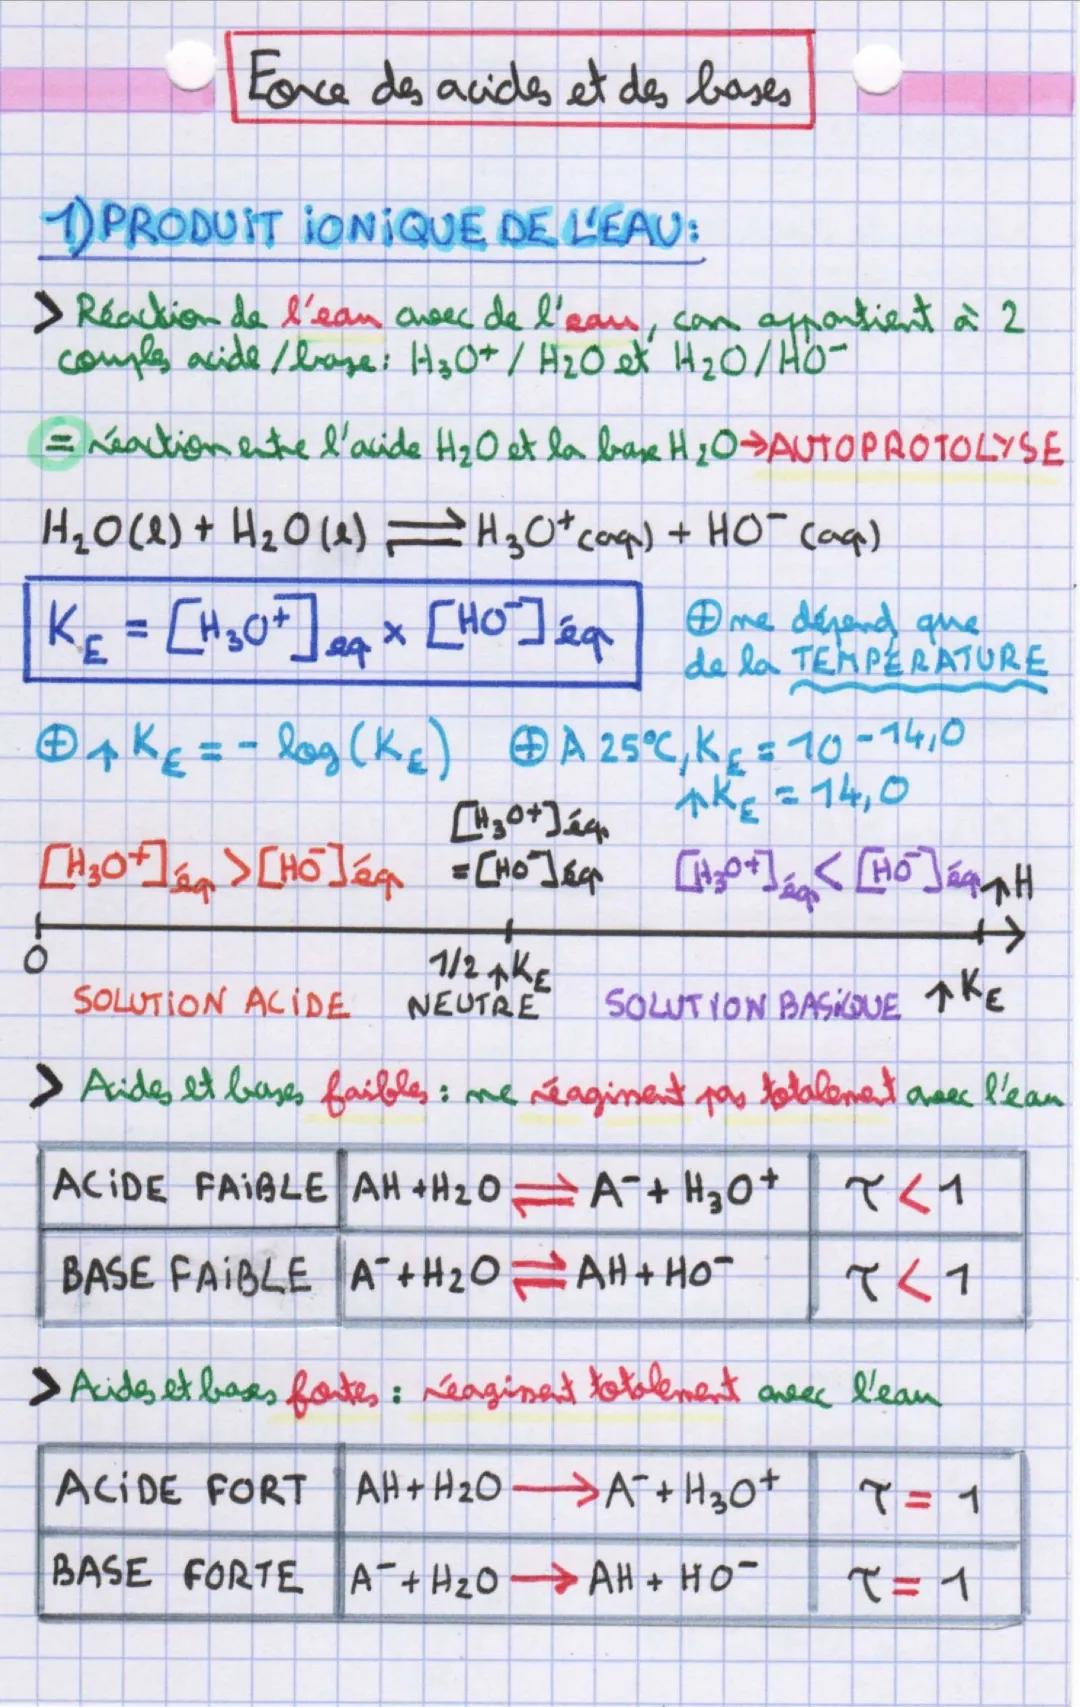 Force des acides et des bases
1) PRODUIT IONIQUE DE L'EAU:
> Réaction de l'eau avec de l'eau, car appartient à 2
couples acide/base: H₃O⁺ / H₂O et H₂O/HO⁻
= réaction entre l'acide H₂O et la base H₂O → AUTOPROTOLYSE
H₂O(l) + H₂O(l) ⇌ H₃O⁺(aq) + HO⁻(aq)
K_E = [H₃O⁺]eq × [HO⁻]éq
⊕ ne dépend que
de la TEMPÉRATURE
⊕ pK_E = - log(K_E) ⊕ A 25°C, K_E = 10^-14,0
pK_E = 14,0
[H₃O⁺]éq > [HO⁻]éq
[H₃O⁺]éq
= [HO⁻]éq
[H₃O⁺]éq < [HO⁻]éq pH
0 1/2 pK_E pK_E
SOLUTION ACIDE NEUTRE SOLUTION BASIQUE
> Acides et bases faibles : ne réagissent pas totalement avec l'eau
ACIDE FAIBLE AH + H₂O ⇌ A⁻ + H₃O⁺ τ < 1
BASE FAIBLE A⁻ + H₂O ⇌ AH + HO⁻ τ < 1
> Acides et bases fortes : réagissent totalement avec l'eau
ACIDE FORT AH + H₂O → A⁻ + H₃O⁺ τ = 1
BASE FORTE A⁻ + H₂O → AH + HO⁻ τ = 1